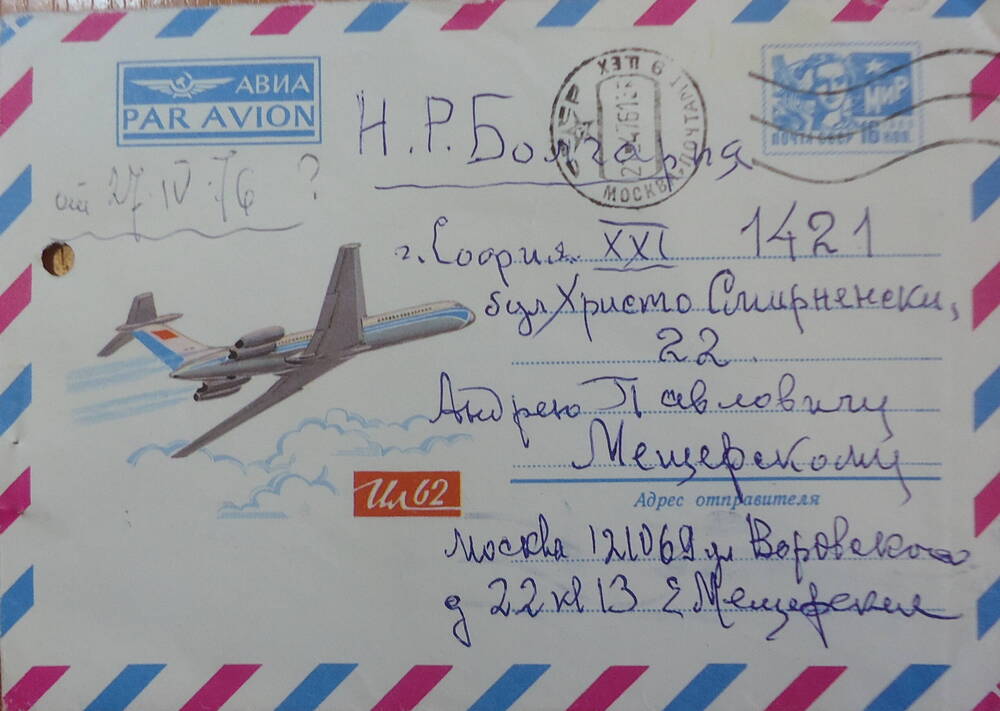 АВИА
PAR AVION
Н.Р. Болгария
МОСКВА ПОЧТАМТ 9 ЦЕХ
МИР
ПОЧТА СССР 16 КОП.
от 27 IV 76 ?
г. София XXI 1421
бул Христо Смирненски,
22
Андрею Павловичу
Мещерскому
Ил 62
Адрес отправителя
Москва 121069 ул Воровского
д 22 кв 13 Е Мещерская